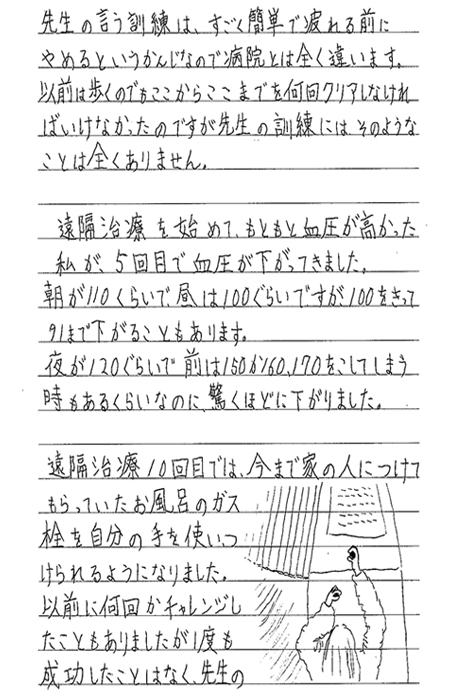 先生の言う訓練は、すごく簡単で疲れる前に
やめるというかんじなので病院とは全く違います。
以前は歩くのでもここからここまでを何回クリアしなけれ
ばいけなかったのですが先生の訓練にはそのような
ことは全くありません。
遠隔治療を始めて、もともと血圧が高かった
私が、5回目で血圧が下がってきました。
朝が110くらいで昼は100ぐらいですが、100をきって
91まで下がることもあります。
夜が120ぐらいで前は150か160,170をこしてしまう
時もあるくらいなのに、驚くほどに下がりました。
遠隔治療10回目では、今まで家の人につけて
もらっていたお風呂のガス
栓を自分の手を使いつ
けられるようになりました。
以前に何回かチャレンジし
たこともありましたが1度も
成功したことはなく、先生の